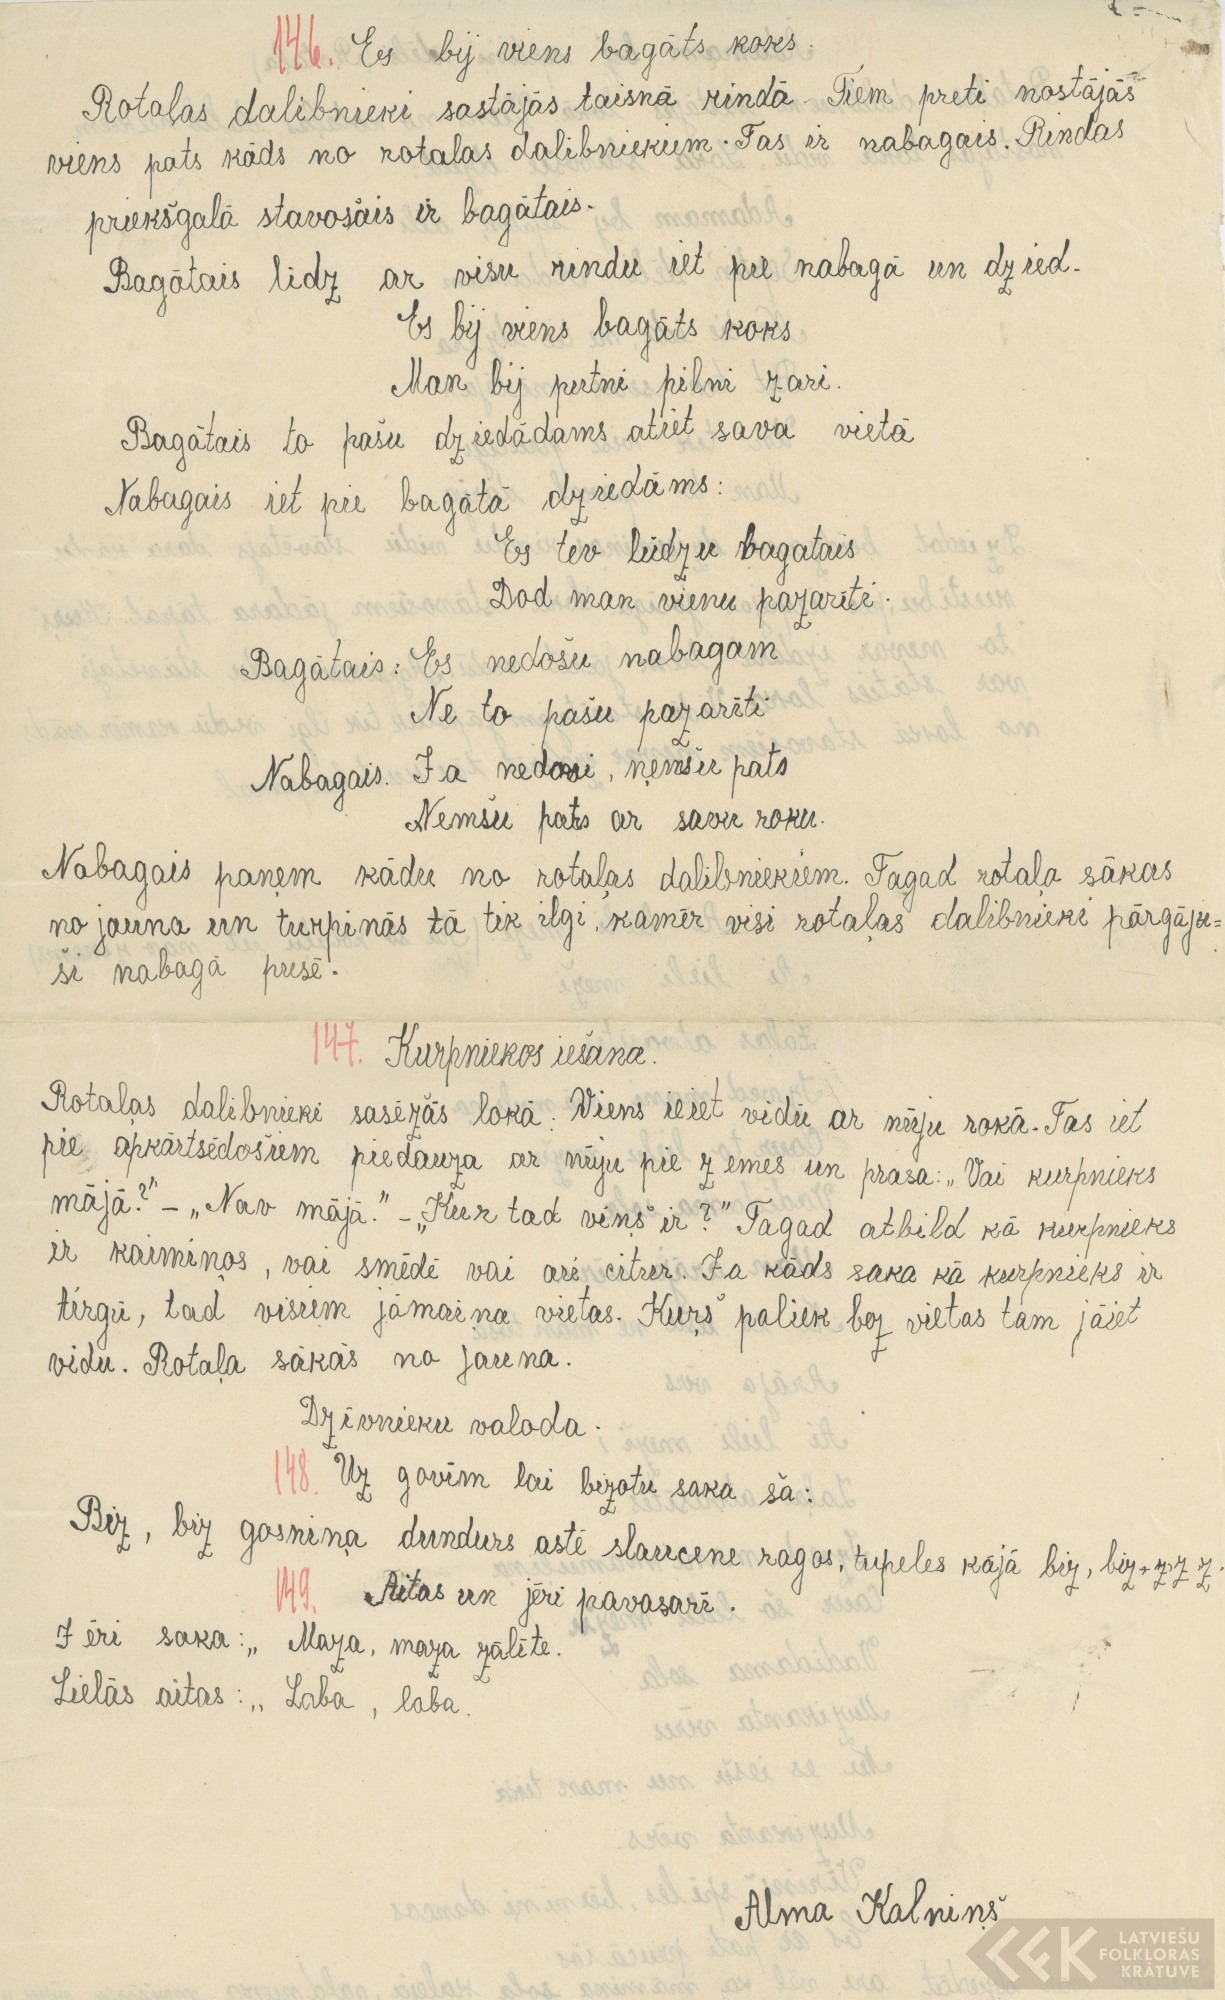 146. Es bij viens bagāts koks.
Rotaļas dalibnieki sastājās taisnā rindā. Tiem preti nostājās
viens pats kāds no rotalas dalibniekiem. Tas ir nabagais. Rindas
priekšgalā stavošais ir bagātais.
Bagātais lidz ar visu rindu iet pie nabagā un dzied.
Es bij viens bagāts koks
Man bij pertni pilni zari.
Bagātais to pašu dziedādams atiet sava vietā
Nabagais iet pie bagātā dziedāms:
Es tev lūdzu bagatais
Dod man vienu pazarīti.
Bagātais: Es nedošu nabagam
Ne to pašu pazarīti
Nabagais. Ja nedosi, ņemšu pats
Nemšu pats ar savu roku.
Nabagais paņem kādu no rotaļas dalibniekiem. Tagad rotaļa sākas
no jauna un turpinās tā tik ilgi, kamēr visi rotaļas dalibnieki pārgāju=
ši nabagā pusē.
147. Kurpniekos iešana.
Rotaļas dalibnieki sasēžās lokā. Viens ieiet vidū ar nūju rokā. Tas iet
pie apkārtsēdošiem piedauza ar nūju pie zemes un prasa: „Vai kurpnieks
mājā?" – „Nav mājā." – „Kur tad viņš ir?" Tagad atbild kā kurpnieks
ir kaimiņos, vai smēdē vai ari citur. Ja kāds saka kā kurpnieks ir
tirgū, tad visiem jāmaiņa vietas. Kuŗš paliek bez vietas tam jāiet
vidu. Rotaļa sākās no jauna.
Dzīvnieku valoda.
148. Uz govīm lai bizotu saka šā:
Biz, biz gosniņa dundurs astē slaucene ragos, tupeles kājā biz, biz, z, z z.
149. Aitas un jēri pavasarī.
Jēri saka: „ Maza, maza zālīte."
Lielās aitas: „ Laba, laba.
Alma Kalniņš
LATVIEŠU
FOLKLORAS
KRĀTUVE